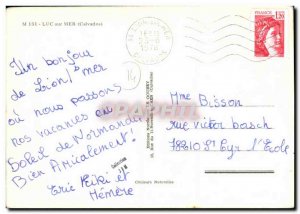 M 151 - LUC sur MER (Calvados)
FRANCE
1,20
Un bonjour
de Lion s/ mer
où nous passons
nos vacances en
Soleil de Normandie
Bien Amicalement!
Eric Kiki et
Mémère
Mme Bisson
rue victor basch
78210 St Cyr l'École
Couleurs Naturelles